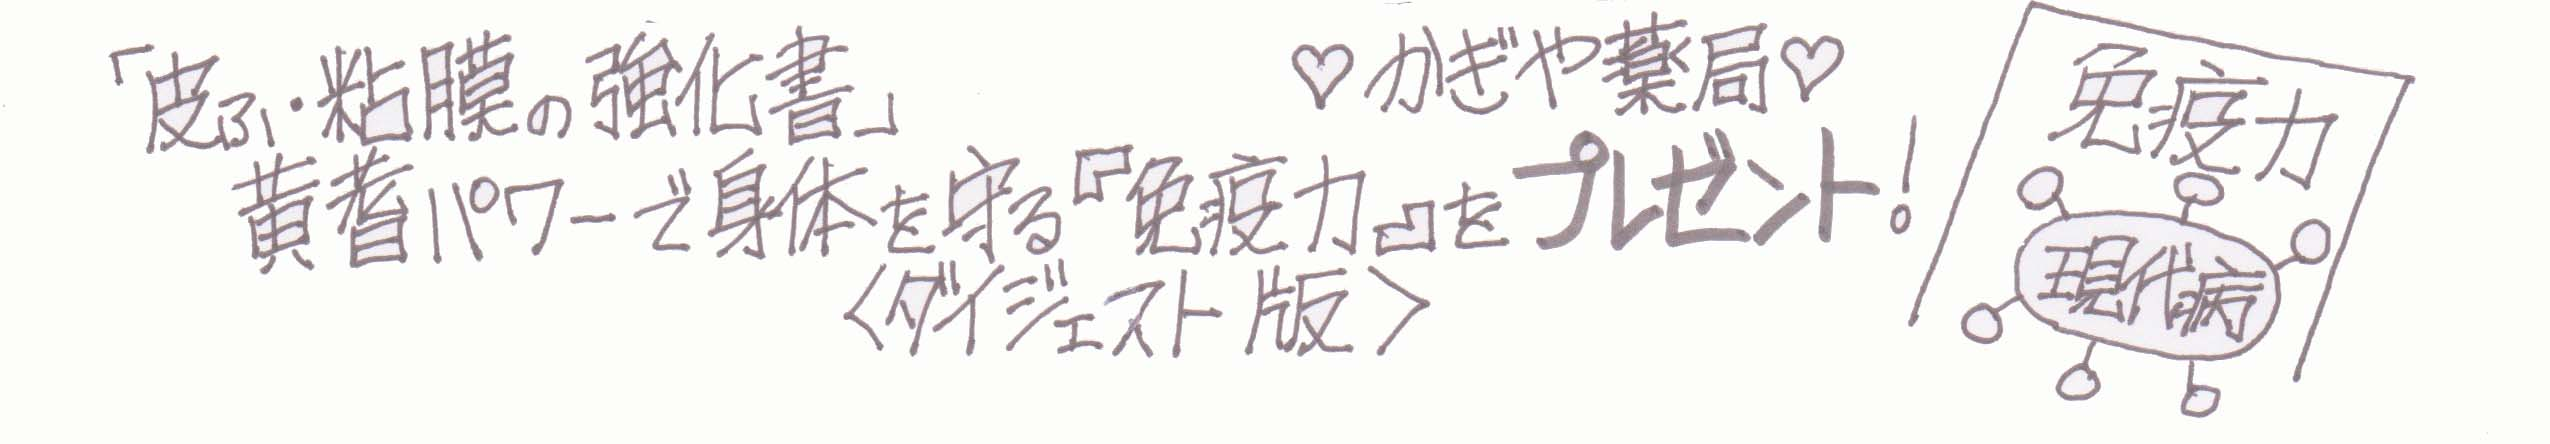 「皮ふ・粘膜の強化書」
♡かぎや薬局♡
黄耆パワーで身体を守る『免疫力』をプレゼント!
〈ダイジェスト版〉
免疫力
現代病